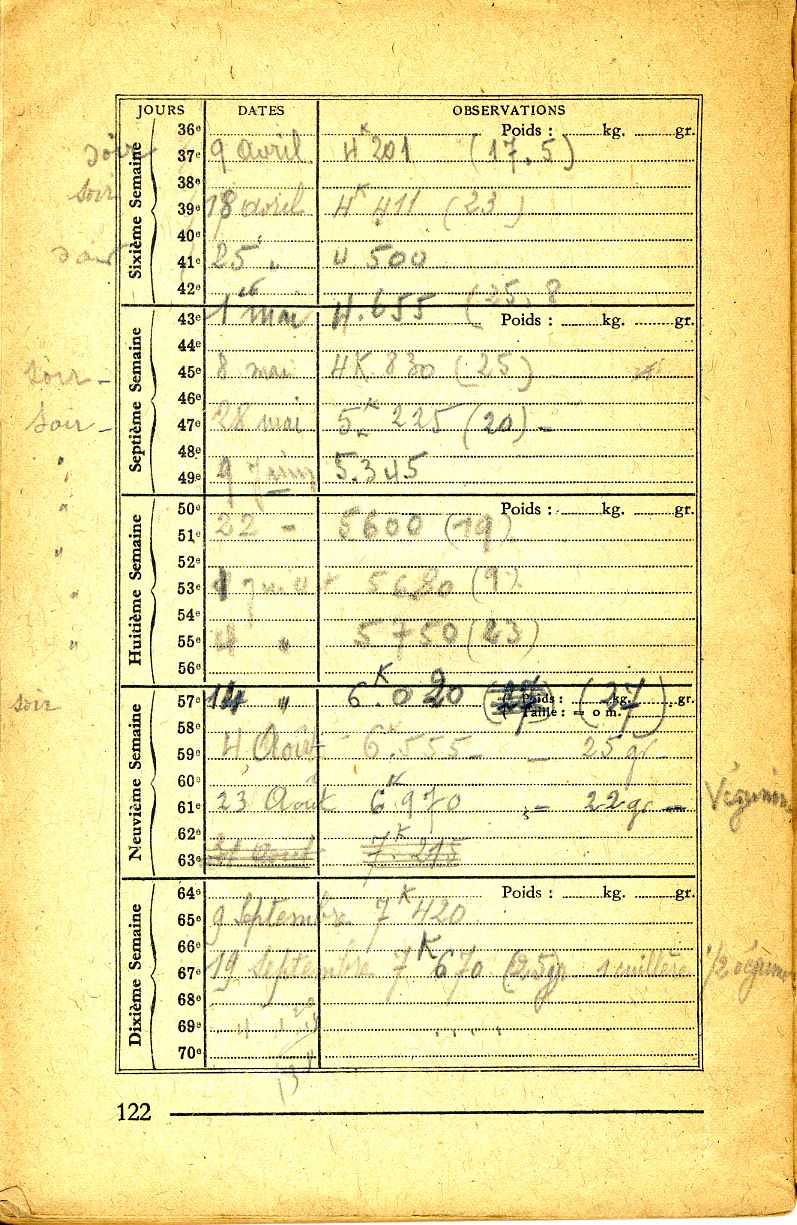 JOURS DATES OBSERVATIONS
Sixième Semaine
36e Poids : kg. gr.
soir 37e 9 avril 4K201 (17.5)
38e
soir 39e 18 avril 4K411 (23)
40e
soir 41e 25 " 4 500
42e
Septième Semaine
43e 1er mai 4.655 (25,8 Poids : kg. gr.
44e
soir - 45e 8 mai 4K830 (25)
46e
soir - 47e 28 mai 5K225 (20) -
48e
" 49e 9 juin 5.345
Huitième Semaine
50e Poids : kg. gr.
" 51e 22 - 5600 (19)
" 52e
" 53e juillet 5680 (9)
54e
" 55e " 5750 (23)
56e
Neuvième Semaine
soir 57e 14 " 6K.020 (27) (27) Poids : kg. gr.
Taille : = 0 m.
58e
59e 4 Août - 6K.555 - - 25 gr
60e
61e 23 Août 6K970 - 22 gr -
62e
63e 31 Août 7K.215
Dixième Semaine
64e Poids : kg. gr.
65e 9 Septembre 7K420
66e
67e 19 Septembre 7K670 (25gr 1/2
68e
69e
70e
122